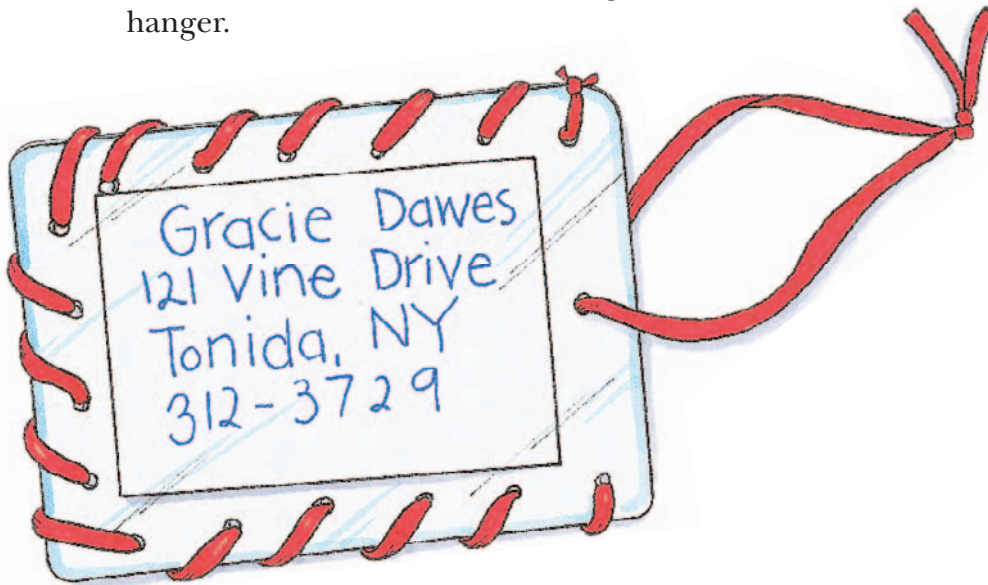 hanger.
Gracie Dawes
121 Vine Drive
Tonida, NY
312-3729